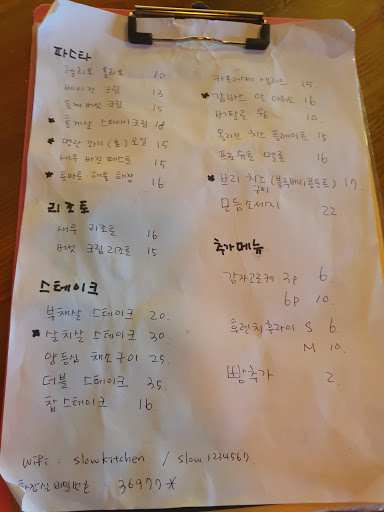 파스타
알리오 올리오 10
베이컨 크림 13
들깨버섯 크림 15
* 통게살 스파이시크림 18
* 명란 파리(오)오일 15
새우 바질 페스토 15
* 토마토 해물 해장 16
리조토
새우 리조토 16
버섯 크림리조토 15
스테이크
부채살 스테이크 20.
* 살치살 스테이크 30.
안등심 채소구이 25.
더블 스테이크 35.
찹 스테이크 16.
카프레제 샐러드 15.
* 감바스 알 아히오 16
버팔로 윙 10
올리브 치즈 플레이트 15
프로슈토 멜론 16
* 브리 치즈 (블루베리콤포트) 17.
구이
모듬소세지 22
추가메뉴
감자고로케 2p 6.
6p 10.
후렌치후라이 S 6.
M 10.
빵추가 2.
wifi : slowkitchen / slow1234567.
화장실 비밀번호 : 36977*